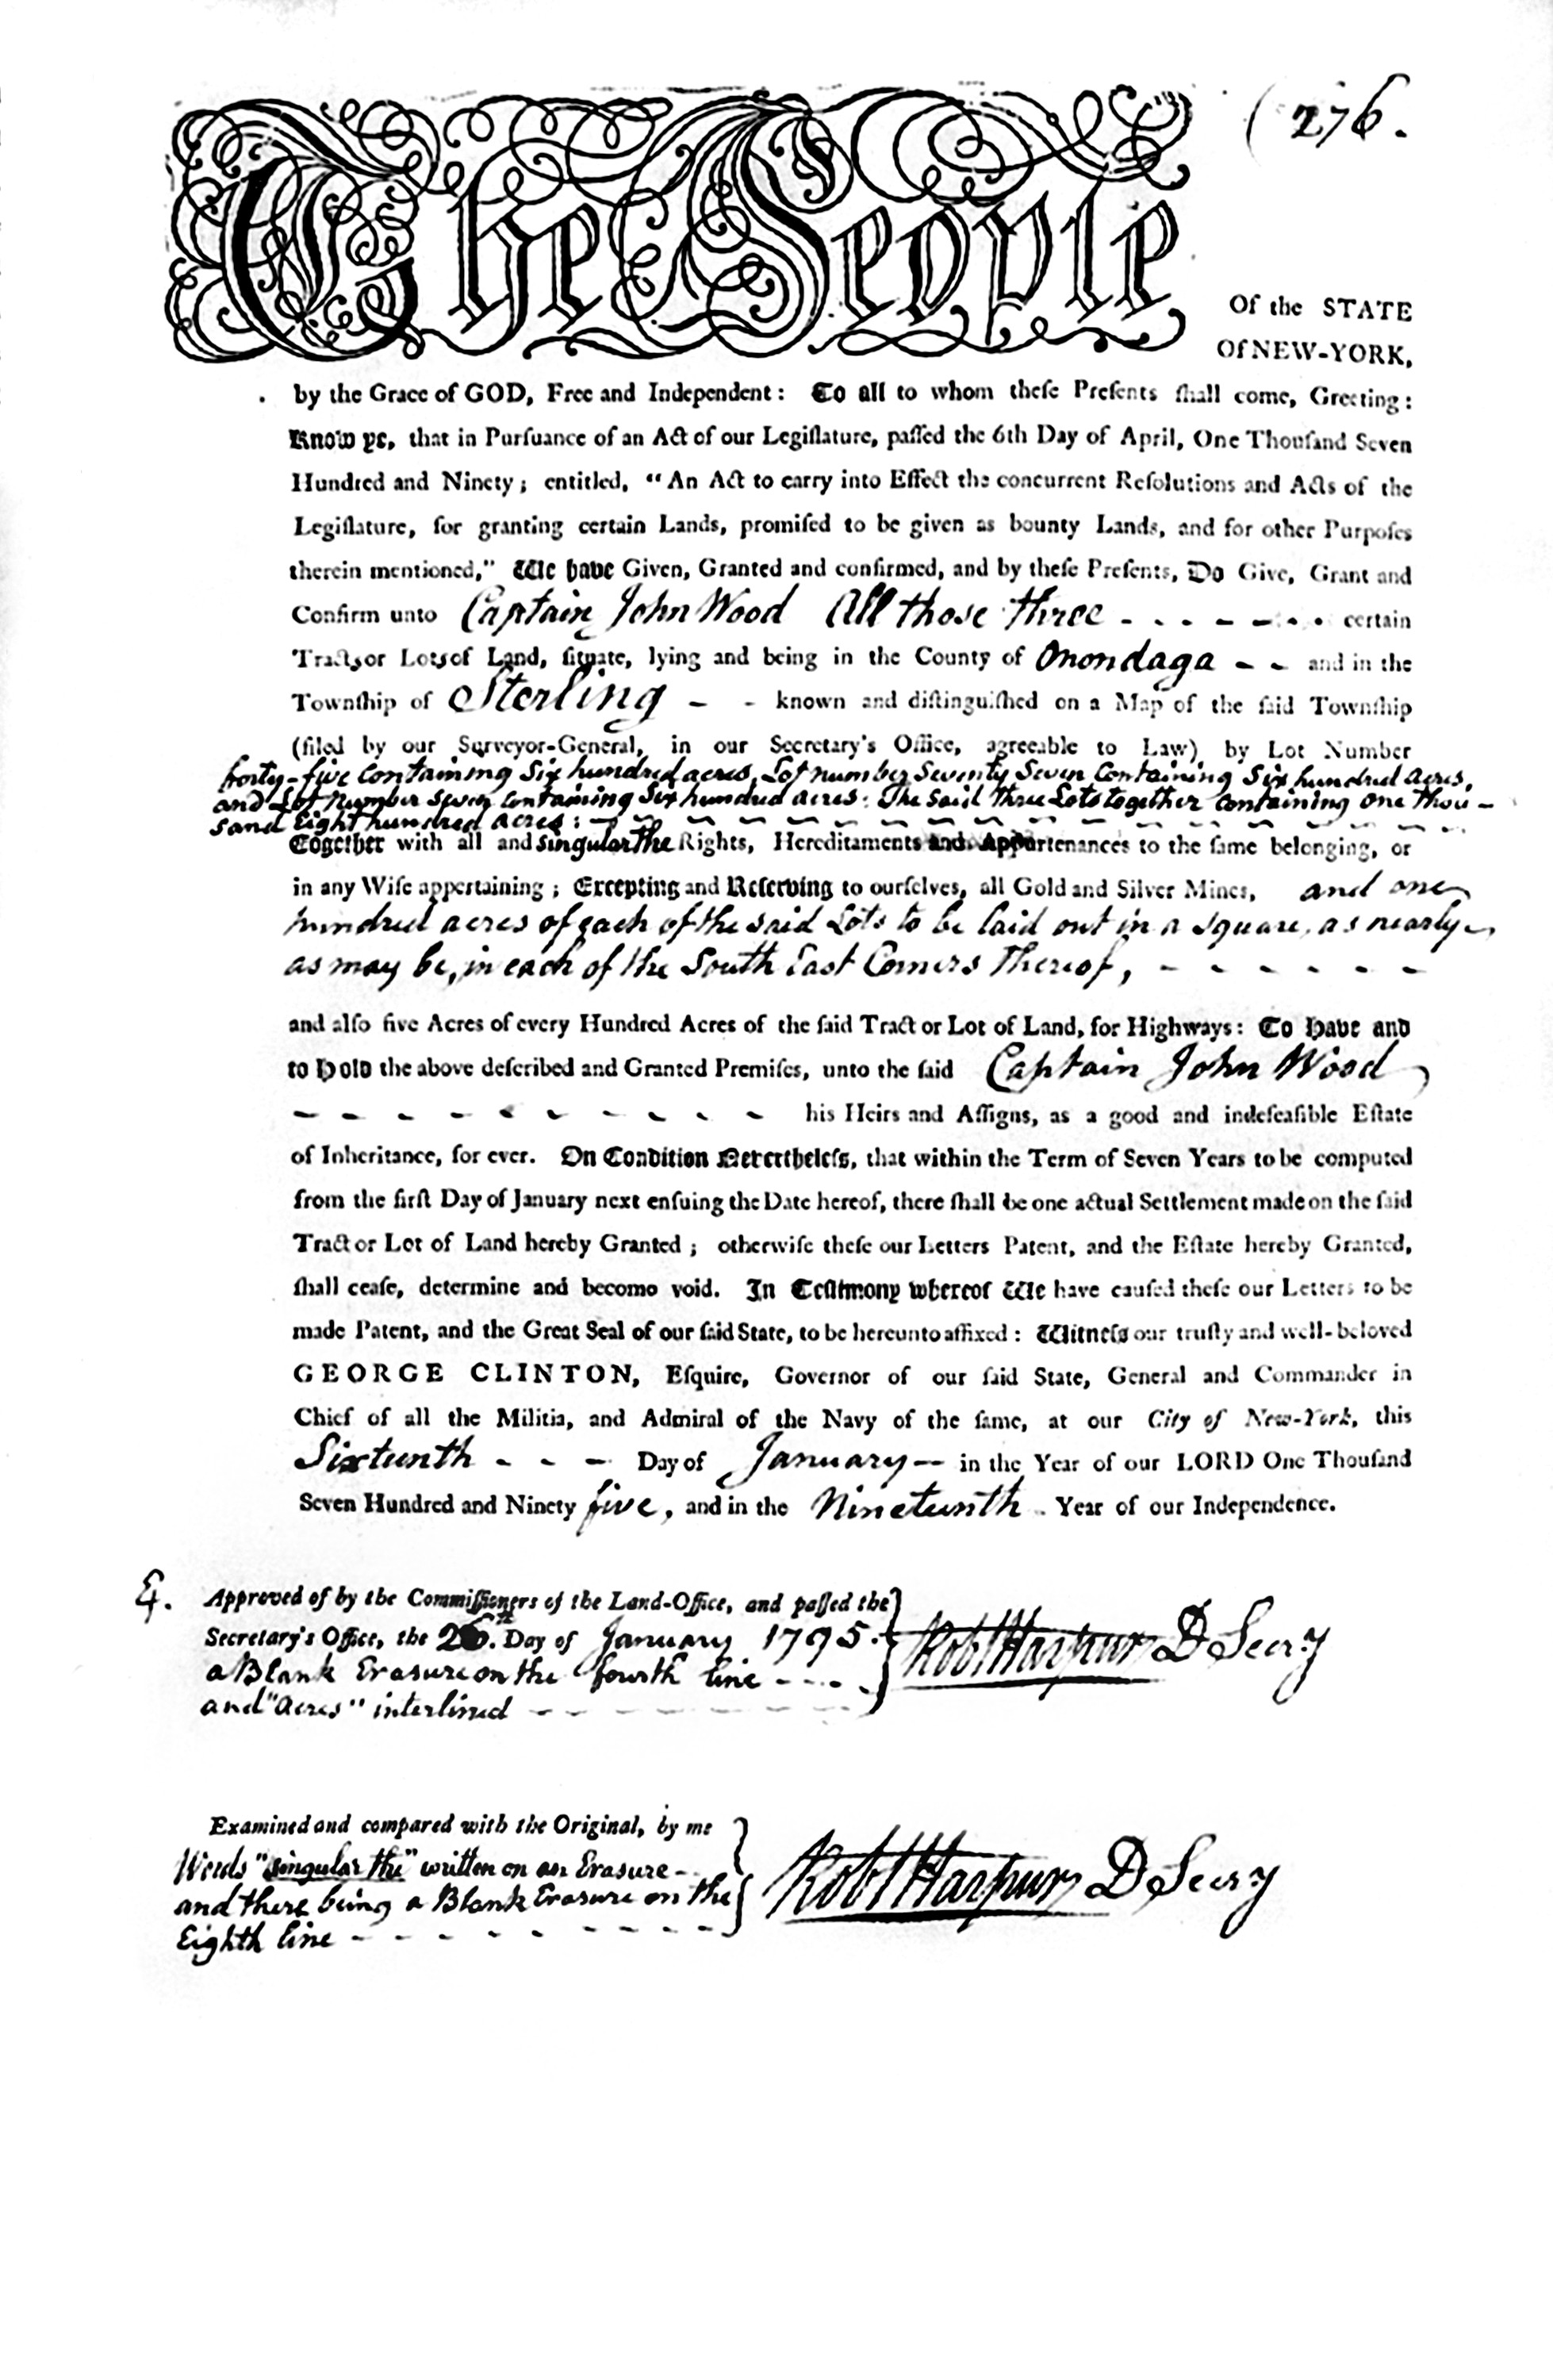 ( 276.
The People
Of the STATE
Of NEW-YORK,
by the Grace of GOD, Free and Independent: To all to whom theſe Preſents ſhall come, Greeting:
Know ye, that in Purſuance of an Act of our Legiſlature, paſſed the 6th Day of April, One Thouſand Seven
Hundred and Ninety; entitled, "An Act to carry into Effect the concurrent Reſolutions and Acts of the
Legiſlature, for granting certain Lands, promiſed to be given as bounty Lands, and for other Purpoſes
therein mentioned," We have Given, Granted and confirmed, and by theſe Preſents, Do Give, Grant and
Confirm unto Captain John Wood All those three - - - - - - - certain
Tracts or Lots of Land, ſituate, lying and being in the County of Onondaga - - and in the
Townſhip of Sterling - - known and diſtinguiſhed on a Map of the ſaid Townſhip
(filed by our Surveyor-General, in our Secretary's Office, agreeable to Law) by Lot Number
forty-five Containing Six hundred acres, Lot number Seventy Seven Containing Six hundred acres,
and Lot Number Seven Containing Six hundred acres: The Said three Lots together Containing One thou-
sand Eight hundred acres: - - - - - - - - - - - - - - - -
Together with all and singular the Rights, Hereditaments and Appurtenances to the ſame belonging, or
in any Wiſe appertaining; Excepting and Reſerving to ourſelves, all Gold and Silver Mines, and one
hundred acres of each of the said Lots to be laid out in a Square, as nearly
as may be, in each of the South East Corners Thereof, - - - - - -
and alſo five Acres of every Hundred Acres of the ſaid Tract or Lot of Land, for Highways: To Have and
to Hold the above deſcribed and Granted Premiſes, unto the ſaid Captain John Wood
- - - - - - - - - - his Heirs and Aſſigns, as a good and indefeaſible Eſtate
of Inheritance, for ever. On Condition Nevertheleſs, that within the Term of Seven Years to be computed
from the firſt Day of January next enſuing the Date hereof, there ſhall be one actual Settlement made on the ſaid
Tract or Lot of Land hereby Granted; otherwiſe theſe our Letters Patent, and the Eſtate hereby Granted,
ſhall ceaſe, determine and become void. In Teſtimony whereof We have cauſed theſe our Letters to be
made Patent, and the Great Seal of our ſaid State, to be hereunto affixed: Witneſs our truſty and well-beloved
GEORGE CLINTON, Eſquire, Governor of our ſaid State, General and Commander in
Chief of all the Militia, and Admiral of the Navy of the ſame, at our City of New-York, this
Sixteenth - - - Day of January - in the Year of our LORD One Thouſand
Seven Hundred and Ninety five, and in the Nineteenth - Year of our Independence.
Approved of by the Commiſſioners of the Land-Office, and paſſed the
Secretary's Office, the 26th. Day of January 1795.
a Blank Erasure on the fourth line - - - -
and "Acres" interlined - - - - - - -
Robt Harpur D Secry
Examined and compared with the Original, by me
Words "singular the" written on an Erasure -
and there being a Blank Erasure on the
Eighth line - - - - - - - -
Robt Harpur D Secry